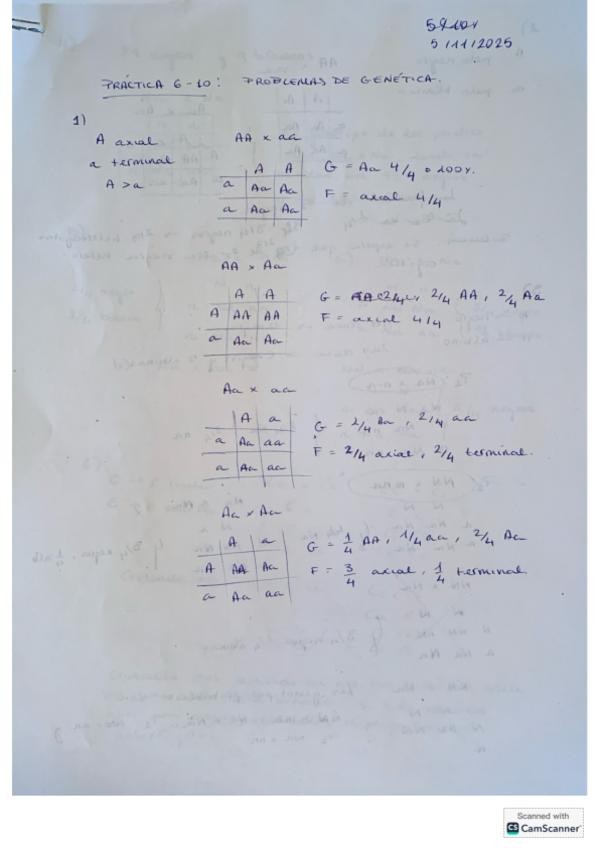 5/11/2025
PRÁCTICA 6-10: PROBLEMAS DE GENÉTICA.
1)
A axial AA x aa
a terminal
A > a
A A
a Aa Aa
a Aa Aa
G = Aa 4/4 o 100%
F = axial 4/4
AA x Aa
A A
A AA AA
a Aa Aa
G = 2/4 AA, 2/4 Aa
F = axial 4/4
Aa x aa
A a
a Aa aa
a Aa aa
G = 2/4 Aa, 2/4 aa
F = 2/4 axial, 2/4 terminal.
Aa x Aa
A a
A AA Aa
a Aa aa
G = 1/4 AA, 1/4 aa, 2/4 Aa
F = 3/4 axial, 1/4 terminal
Scanned with
CS CamScanner